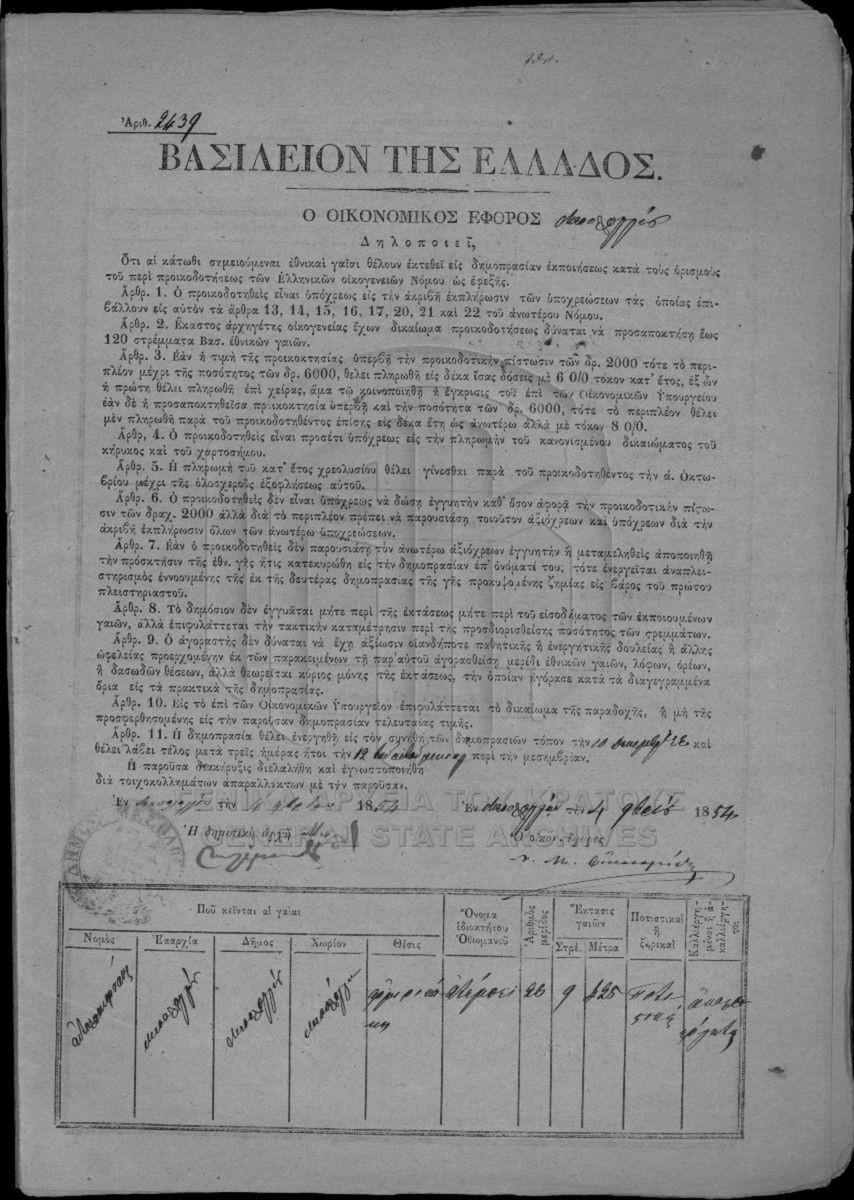 Ἀριθ. 2439
ΒΑΣΙΛΕΙΟΝ ΤΗΣ ΕΛΛΑΔΟΣ.
Ο ΟΙΚΟΝΟΜΙΚΟΣ ΕΦΟΡΟΣ
Δηλοποιεῖ,
Ὅτι αἱ κάτωθι σημειούμεναι ἐθνικαὶ γαῖαι θέλουν ἐκτεθεῖ εἰς δημοπρασίαν ἐκποιήσεως κατὰ τοὺς ὁρισμοὺς
τοῦ περὶ προικοδοτήσεως τῶν Ἑλληνικῶν οἰκογενειῶν Νόμου ὡς ἐφεξῆς.
Ἄρθρ. 1. Ὁ προικοδοτηθεὶς εἶναι ὑπόχρεως εἰς τὴν ἀκριβῆ ἐκπλήρωσιν τῶν ὑποχρεώσεων τὰς ὁποίας ἐπι-
βάλλουν εἰς αὐτὸν τὰ ἄρθρα 13, 14, 15, 16, 17, 20, 21 καὶ 22 τοῦ ἀνωτέρω Νόμου.
Ἄρθρ. 2. Ἕκαστος ἀρχηγέτης οἰκογενείας ἔχων δικαίωμα προικοδοτήσεως δύναται νὰ προσαποκτήσῃ ἕως
120 στρέμματα Βασ. ἐθνικῶν γαιῶν.
Ἄρθρ. 3. Ἐὰν ἡ τιμὴ τῆς προικοκτησίας ὑπερβῇ τὴν προικοδοτικὴν πίστωσιν τῶν δρ. 2000 τότε τὸ περι-
πλέον μέχρι τῆς ποσότητος τῶν δρ. 6000, θέλει πληρωθῆ εἰς δέκα ἴσας δόσεις μὲ 6 0/0 τόκον κατ' ἔτος, ἐξ ὧν
ἡ πρώτη θέλει πληρωθῆ ἐπὶ χείρας, ἅμα τῷ κοινοποιηθῇ ἡ ἔγκρισις τοῦ ἐπὶ τῶν Οἰκονομικῶν Ὑπουργείου
ἐὰν δὲ ἡ προσαποκτηθεῖσα προικοκτησία ὑπερβῇ καὶ τὴν ποσότητα τῶν δρ. 6000, τότε τὸ περιπλέον θέλει
μὲν πληρωθῆ παρὰ τοῦ προικοδοτηθέντος ἐπίσης εἰς δέκα ἔτη ὡς ἀνωτέρω ἀλλὰ μὲ τόκον 8 0/0.
Ἄρθρ, 4. Ὁ προικοδοτηθεὶς εἶναι προσέτι ὑπόχρεως εἰς τὴν πληρωμὴν τοῦ κανονισμένου δικαιώματος τοῦ
κήρυκος καὶ τοῦ χαρτοσήμου.
Ἄρθρ. 5. Ἡ πληρωμὴ τοῦ κατ' ἔτος χρεολυσίου θέλει γίνεσθαι παρὰ τοῦ προικοδοτηθέντος τὴν ά. Ὀκτω-
βρίου μέχρι τῆς ὁλοσχεροῦς ἐξοφλήσεως αὐτοῦ.
Ἄρθρ. 6. Ὁ προικοδοτηθεὶς δὲν εἶναι ὑπόχρεως νὰ δώσῃ ἐγγυητὴν καθ' ὅσον ἀφορᾷ τὴν προικοδοτικὴν πίστω-
σιν τῶν δραχ. 2000 ἀλλὰ διὰ τὸ περιπλέον πρέπει νὰ παρουσιάσῃ τοιοῦτον ἀξιόχρεων καὶ ὑπόχρεων διὰ τὴν
ἀκριβῆ ἐκπλήρωσιν ὅλων τῶν ἀνωτέρω ὑποχρεώσεων.
Ἄρθρ. 7. Ἐὰν ὁ προικοδοτηθεὶς δὲν παρουσιάσῃ τὸν ἀνωτέρω ἀξιόχρεων ἐγγυητὴν ἢ μεταμεληθεὶς ἀποποιηθῇ
τὴν πρόσκτησιν τῆς ἐθν. γῆς ἥτις κατεκυρώθη εἰς τὴν δημοπρασίαν ἐπ' ὀνόματί του, τότε ἐνεργεῖται ἀναπλει-
στηρισμὸς ἐννοουμένης τῆς ἐκ τῆς δευτέρας δημοπρασίας τῆς γῆς προκυψομένης ζημίας εἰς βάρος τοῦ πρώτου
πλειστηριαστοῦ.
Ἄρθρ. 8. Τὸ δημόσιον δὲν ἐγγυᾶται μήτε περὶ τῆς ἐκτάσεως μήτε περὶ τοῦ εἰσοδήματος τῶν ἐκποιουμένων
γαιῶν, ἀλλὰ ἐπιφυλάττεται τὴν τακτικὴν καταμέτρησιν περὶ τῆς προσδιορισθείσης ποσότητος τῶν στρεμμάτων.
Ἄρθρ. 9. Ὁ ἀγοραστὴς δὲν δύναται νὰ ἔχῃ ἀξίωσιν οἱανδήποτε παθητικῆς ἢ ἐνεργητικῆς δουλείας ἢ ἄλλης
ὠφελείας προερχομένην ἐκ τῶν παρακειμένων τῇ παρ' αὐτοῦ ἀγορασθείσῃ μερίδι ἐθνικῶν γαιῶν, λόφων, ὀρέων,
ἢ δασωδῶν θέσεων, ἀλλὰ θεωρεῖται κύριος μόνης τῆς ἐκτάσεως, τὴν ὁποίαν ἠγόρασε κατὰ τὰ διαγεγραμμένα
ὅρια εἰς τὰ πρακτικὰ τῆς δημοπρασίας.
Ἄρθρ. 10. Εἰς τὸ ἐπὶ τῶν Οἰκονομικῶν Ὑπουργεῖον ἐπιφυλάττεται τὸ δικαίωμα τῆς παραδοχῆς, ἢ μὴ τῆς
προσφερθησομένης εἰς τὴν παροῦσαν δημοπρασίαν τελευταίας τιμῆς.
Ἄρθρ. 11. Ἡ δημοπρασία θέλει ἐνεργηθῆ εἰς τὸν συνήθη τῶν δημοπρασιῶν τόπον τὴν 10 καὶ
θέλει λάβει τέλος μετὰ τρεῖς ἡμέρας ἤτοι τὴν 12 περὶ τὴν μεσημβρίαν.
Ἡ παροῦσα διακήρυξις διελαλήθη καὶ ἐγνωστοποιήθη
διὰ τοιχοκολλημάτων ἀπαραλλάκτων μὲ τὴν παροῦσαν.
Ἐν τὴν 4 1854 Ἐν τὴν 4 1854
ΓΕΝΙΚΑ ΑΡΧΕΙΑ ΤΟΥ ΚΡΑΤΟΥΣ
GENERAL STATE ARCHIVES
Ἡ δημοτικὴ ἀρχὴ Ὁ οἰκον. ἔφορος
Ποῦ κεῖνται αἱ γαῖαι Ὄνομα ἰδιοκτήτου Ὀθωμανοῦ Ἀριθμὸς μερίδος Ἔκτασις γαιῶν Ποτιστικαὶ ἢ ξηρικαί Καλλιεργημέναι ἢ ἀκαλλιέργητοι
Νομὸς Ἐπαρχία Δῆμος Χωρίον Θέσις Στρέ. Μέτρα
9 Ποτιστικὴ